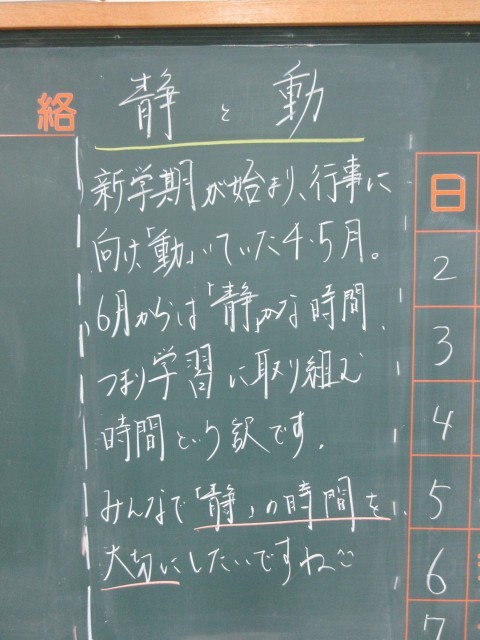 絡
静と動
新学期が始まり、行事に
向け「動」いていた4・5月。
6月からは「静」かな時間、
つまり学習に取り組む
時間という訳です。
みんなで「静」の時間を
大切にしたいですね
日
2
3
4
5
6
7